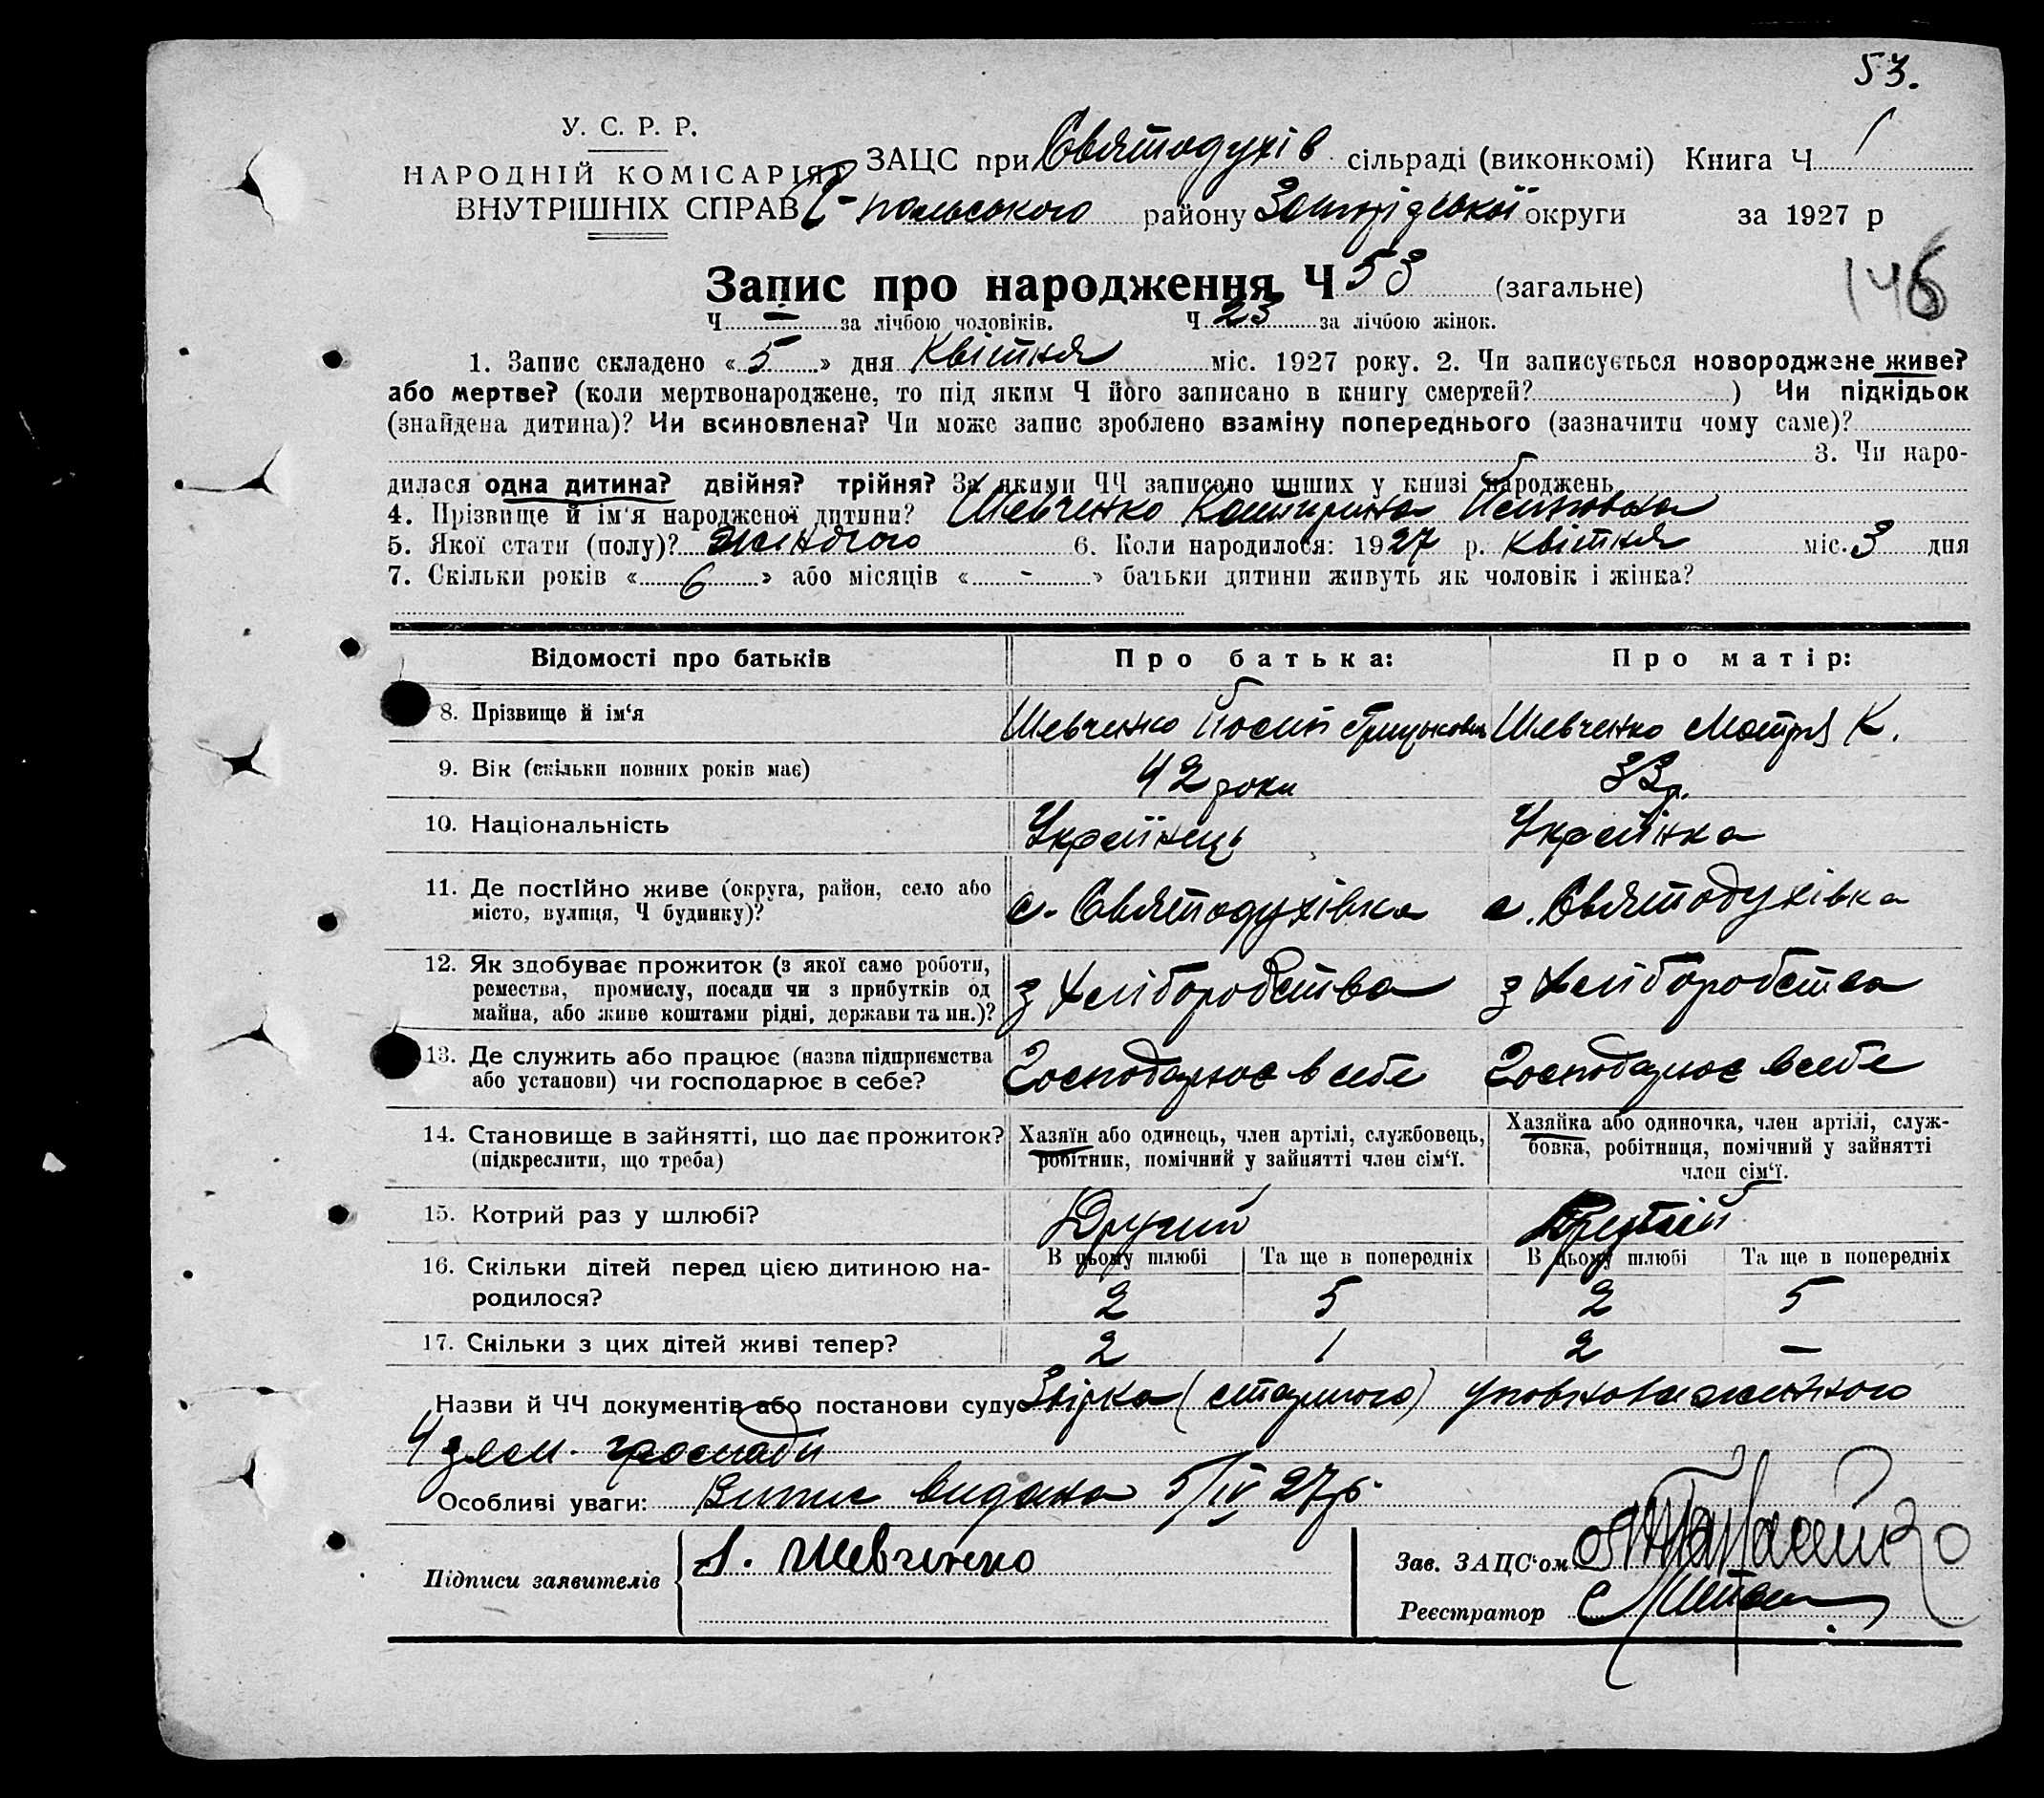 53.
У. С. Р. Р.
НАРОДНІЙ КОМІСАРІЯТ
ВНУТРІШНІХ СПРАВ
ЗАЦС при Святодухів сільраді (виконкомі) Книга Ч 1
польського району округи за 1927 р
146
Запис про народження Ч 53 (загальне)
Ч - за лічбою чоловіків. Ч 23 за лічбою жінок.
1. Запис складено «5» дня Квітня міс. 1927 року. 2. Чи записується новороджене живе?
або мертве? (коли мертвонароджене, то під яким Ч його записано в книгу смертей? ) Чи підкідьок
(знайдена дитина)? Чи всиновлена? Чи може запис зроблено взаміну попереднього (зазначити чому саме)?
3. Чи наро-
дилася одна дитина? двійня? трійня? За якими ЧЧ записано инших у книзі народжень
4. Прізвище й ім'я народженої дитини? Шевченко Катирина
5. Якої стати (полу)? жіночого 6. Коли народилося: 1927 р. квітня міс. 3 дня
7. Скільки років «6» або місяців «-» батьки дитини живуть як чоловік і жінка?
Відомості про батьків Про батька: Про матір:
8. Прізвище й ім'я Шевченко Йосип Грицькович Шевченко Мотря К.
9. Вік (скільки повних років має) 42 роки 33 р.
10. Національність Українець Українка
11. Де постійно живе (округа, район, село або
місто, вулиця, Ч будинку)? с. Святодухівка с. Святодухівка
12. Як здобуває прожиток (з якої само роботи,
ремества, промислу, посади чи з прибутків од
майна, або живе коштами рідні, держави та ин.)? з хліборобства з хліборобства
13. Де служить або працює (назва підприємства
або установи) чи господарює в себе? Господарює в себе Господарює в себе
14. Становище в зайнятті, що дає прожиток?
(підкреслити, що треба)
Хазяїн або одинець, член артілі, службовець,
робітник, помічний у зайнятті член сім'ї.
Хазяйка або одиночка, член артілі, служ-
бовка, робітниця, помічний у зайнятті
член сім'ї.
15. Котрий раз у шлюбі? Другий Третій
16. Скільки дітей перед цією дитиною на-
родилося?
В цьому шлюбі Та ще в попередніх В цьому шлюбі Та ще в попередніх
2 5 2 5
17. Скільки з цих дітей живі тепер? 2 1 2 —
Назви й ЧЧ документів або постанови суду уповноваженного
4 зем. громади
Особливі уваги: Випис видана 5/IV 27р.
Підписи заявителів Шевченко
Зав. ЗАЦС'ом
Реєстратор